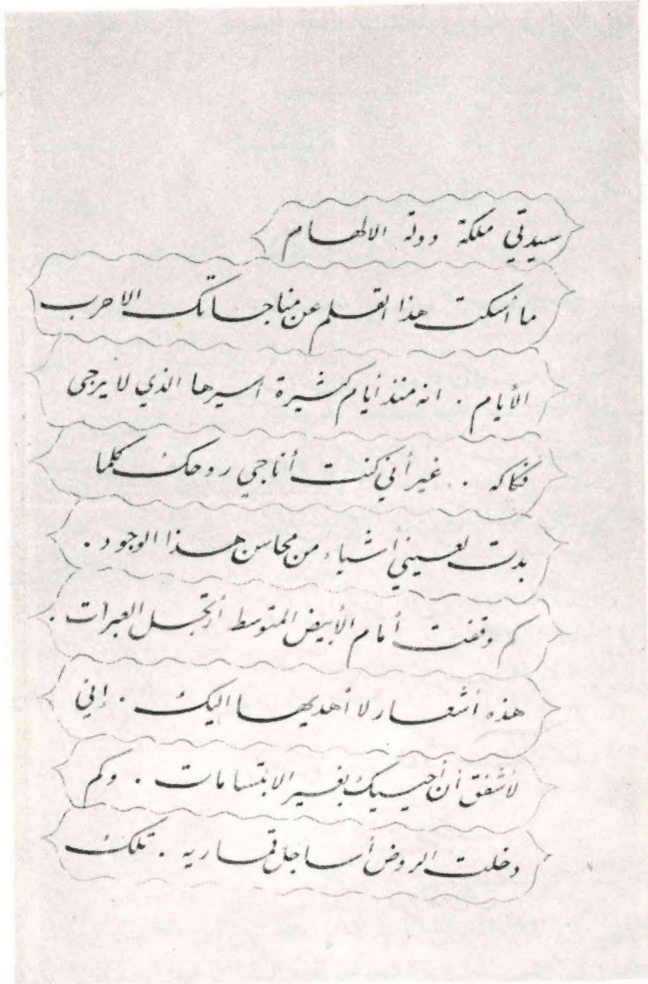 سيدتي ملكة دولة الالهام
ما أسكت هذا القلم عن مناجاتك الا حرب
الأيام . انه منذ أيام كثيرة أسيرها الذي لا يرجى
فكاكه . . غير أني كنت أناجي روحك كلما
بدت لعيني أشياء من محاسن هذا الوجود .
كم وقفت أمام الأبيض المتوسط أرتجل العبرات .
هذه أشعار لا أهديها اليك . إني
لأشفق أن أحييك بغير الابتسامات . وكم
دخلت الروض أساجل قماريه . تلك